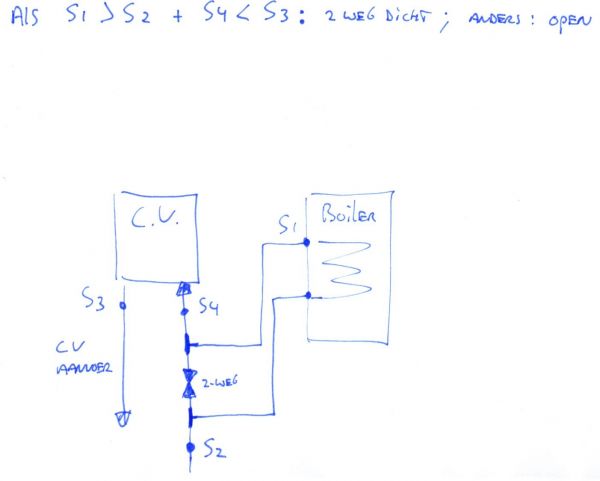 Als S1 > S2 + S4 < S3 : 2 WEG DICHT ; ANDERS : OPEN
C.V.
BOILER
S1
S3
S4
CV
AANVOER
2-WEG
S2